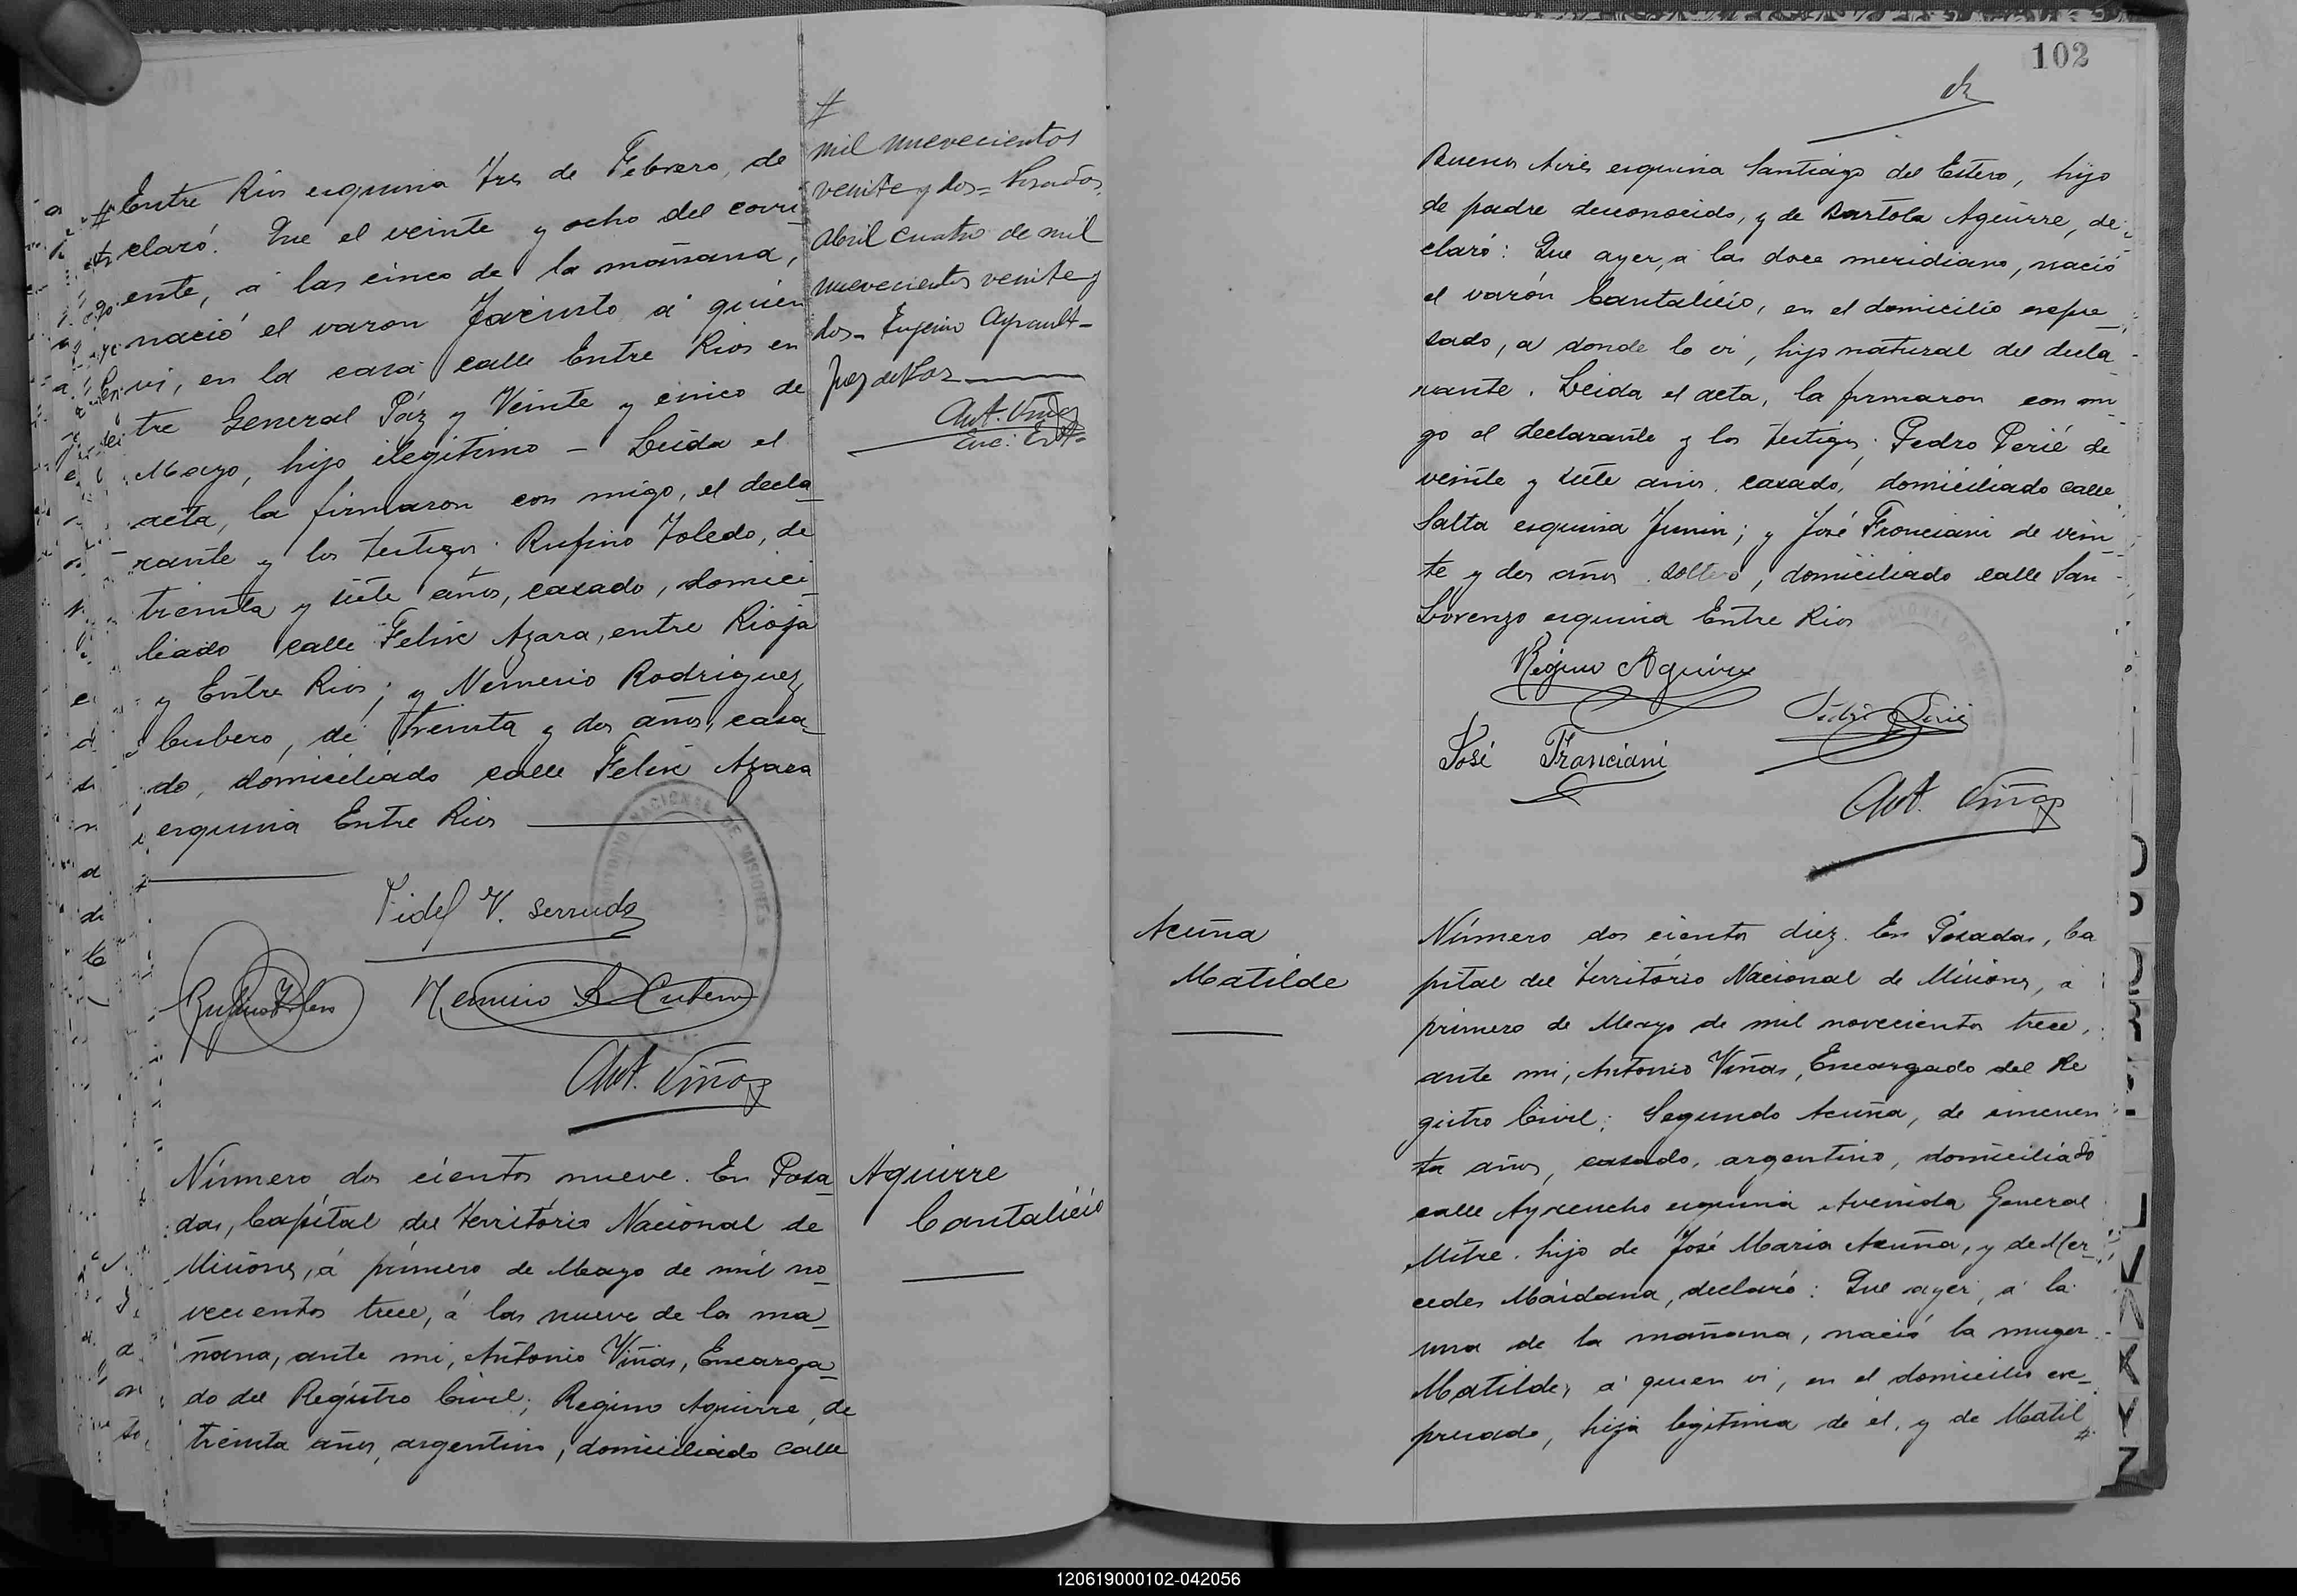 Entre Rios esquina Tres de Febrero, de
claró. Que el veinte y ocho del corri
ente, á las cinco de la mañana,
nació el varon Jacinto á quien
vi, en la casa calle Entre Rios en
tre General Páz y Veinte y cinco de
Mayo, hijo ilegitimo - Leida el
acta, la firmaron con migo, el decla_
rante y los testigos: Rufino Toledo, de
treinta y siete años, casado, domici_
liado calle Felix Azara, entre Rioja
y Entre Rios; y Nemesio Rodriguez
Cubero, de treinta y dos años, casa_
do, domiciliado calle Felix Azara
esquina Entre Rios
Fidel V. Serrudo
Rufino Toledo
Nemesio R Cubero
Ant. Viñas
TERRITORIO NACIONAL DE MISIONES
#
mil nuevecientos
veinte y dos = Posadas,
Abril cuatro de mil
nuevecientos veinte y
dos - Eugenio Ayrault -
Juez de Paz
Ant. Viñas
Enc:
Número dos cientos nueve. En Posa_
das, Capital del Território Nacional de
Misiones, á primero de Mayo de mil no_
vecientos trece, á las nueve de la ma_
ñana, ante mi, Antonio Viñas, Encarga_
do del Registro Civil; Regino Aguirre, de
treinta años, argentino, domiciliado calle
Aguirre
Cantalicio
102
Buenos Aires esquina Santiago del Estero, hijo
de padre desconocido, y de Bartola Aguirre, de_
claró: Que ayer, á las doce meridiano, nació
el varón Cantalicio, en el domicilio expre_
sado, a donde lo vi, hijo natural del decla_
rante. Leida el acta, la firmaron con mi_
go el declarante y los testigos; Pedro Perié de
veinte y siete años, casado, domiciliado calle
Salta esquina Junin; y José Fronciani de vein_
te y dos años soltero, domiciliado calle San
Lorenzo esquina Entre Rios
Regino Aguirre
Pedro Perié
José Franciani
Ant. Viñas
Acuña
Matilde
Número dos cientos diez. En Posadas, Ca
pital del Território Nacional de Misiones, á
primero de Mayo de mil novecientos trece,
ante mi, Antonio Viñas, Encargado del Re
gistro Civil; Segundo Acuña, de cincuen
ta años, casado, argentino, domiciliado
calle Ayacucho esquina Avenida General
Mitre. hijo de José Maria Acuña, y de Mer_
cedes Maidana, declaró: Que ayer, á la
una de la mañana, nació la muger
Matilde, á quien vi, en el domicilio ex_
presado, hija legitima de él, y de Matil
#
120619000102-042056